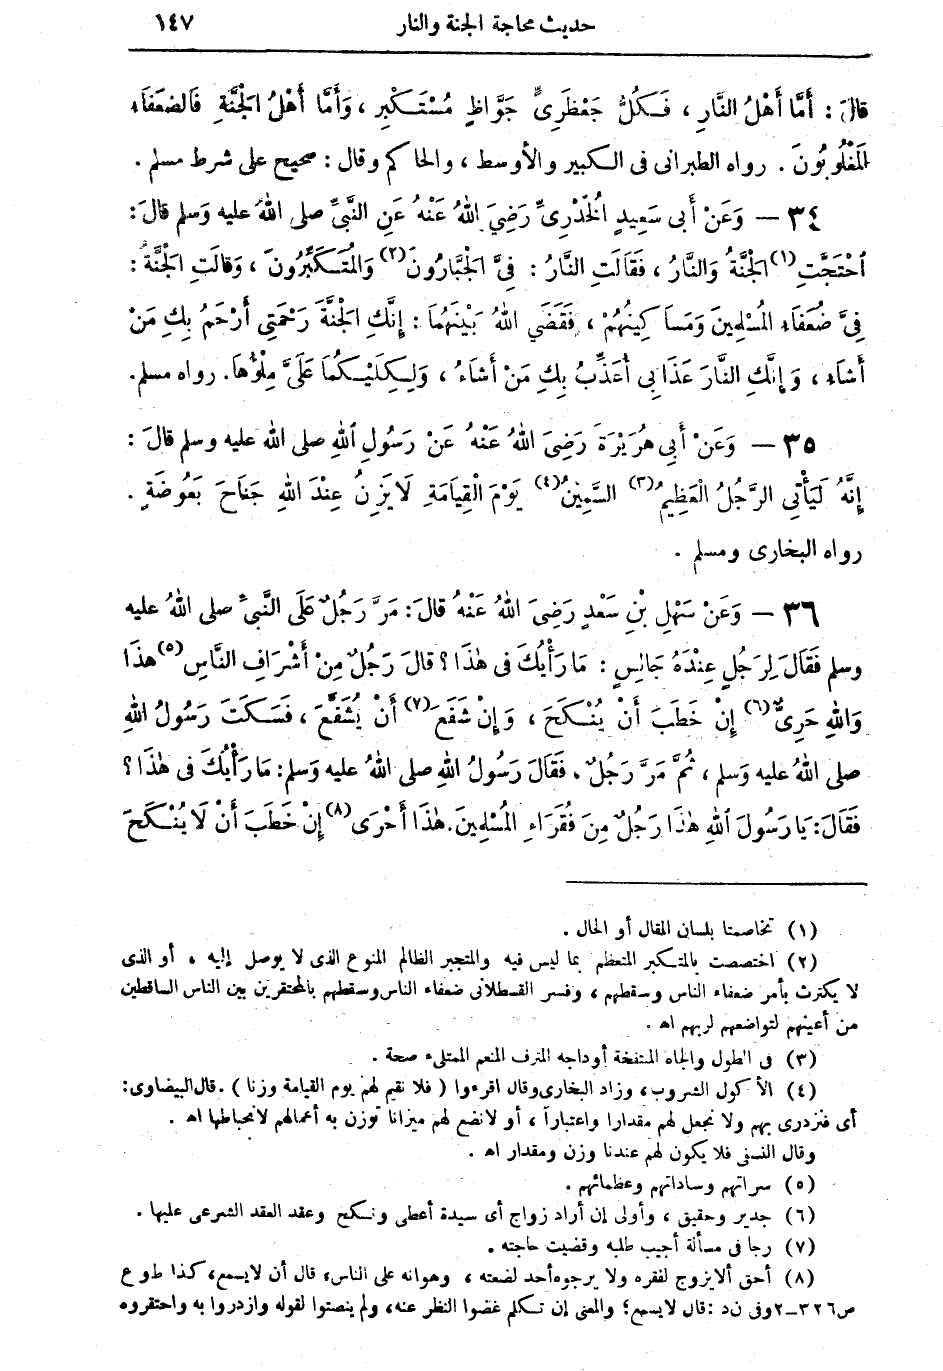 حديث محاجة الجنة والنار ١٤٧
قالَ : أَمَّا أَهْلُ النَّارِ ، فَكُلُّ جَعْظَرِىٍّ جَوَّاظٍ مُسْتَكْبِرٍ ، وَأَمَّا أَهْلُ الْجَنَّةِ فَالضعَفَاءِ
الْمَغْلُوبُونَ . رواه الطبرانى فى الكبير والأوسط ، والحاكم وقال : صحيح على شرط مسلم .
٣٤ — وَعَنْ أَبى سَعِيدٍ الْخُدْرِىِّ رَضِيَ اللهُ عَنْهُ عَنِ النَّبِىِّ صلى اللهُ عليه وَسلم قالَ :
اُحْتَجَّتِ (١) الْجَنَّةُ وَالنَّارُ ، فَقَالَتِ النَّارُ : فِىَّ الْجَبَّارُونَ (٢) وَالْمُتَكَبِّرُونَ ، وَقالَتِ الْجَنَّةُ :
فِىَّ ضُعَفَاءِ الْمُسْلِمِينَ وَمَسَاكِينُهُمْ ، فَقَضَى اللهُ بَيْنَهُمَا : إِنَّكِ الْجَنَّةَ رَحْمَتِى أَرْحَمُ بِكِ مَنْ
أَشَاءِ ، وَإِنَّكِ النَّارَ عَذَابِى أُعَذِّبُ بِكِ مَنْ أَشَاءُ ، وَلِكِلَيْكُمَا عَلَىَّ مِلْؤُهَا. رواه مسلم.
٣٥ — وَعَنْ أَبِى هُرَيْرَةَ رَضِىَ اللهُ عَنْهُ عَنْ رَسُولِ اللهِ صلى الله عليه وسلم قالَ :
إِنَّهُ لَيَأْتِى الرَّجُلُ الْعَظِيمُ (٣) السَّمِينُ (٤) يَوْمَ الْقِيَامَةِ لَا يَزِنُ عِنْدَ اللهِ جَنَاحَ بَعُوضَةٍ .
رواه البخارى ومسلم .
٣٦ — وَعَنْ سَهْلِ بْنِ سَعْدٍ رَضِىَ اللهُ عَنْهُ قالَ : مَرَّ رَجُلٌ عَلَى النَّبِىِّ صلى اللهُ عليه
وسلم فَقَالَ لِرَجُلٍ عِنْدَهُ جَالِسٍ : مَا رَأْيُكَ فى هٰذَا ؟ قالَ رَجُلٌ مِنْ أَشْرَافِ النَّاسِ (٥) هٰذَا
وَاللهِ حَرِىٌّ (٦) إِنْ خَطَبَ أَنْ يُنْكَحَ ، وَإِنْ شَفَعَ (٧) أَنْ يُشَفَّعَ ، فَسَكَتَ رَسُولُ اللهِ
صلى اللهُ عليه وَسلم ، ثُمَّ مَرَّ رَجُلٌ . فَقَالَ رَسُولُ اللهِ صلى اللهُ عليه وَسلم : مَا رَأْيُكَ فى هٰذَا ؟
فَقَالَ: يَا رَسُولَ اللهِ هٰذَا رَجُلٌ مِنَ فُقَرَاءِ الْمُسْلِمِينَ. هٰذَا أَحْرَى (٨) إِنْ خَطَبَ أَنْ لَا يُنْكَحَ
(١) تخاصمتا بلسان المقال أو الحال .
(٢) اختصصت بالمتكبر المتعظم بما ليس فيه والمتجبر الظالم المنوع الذى لا يوصل إليه ، أو الذى
لا يكترث بأمر ضعفاء الناس وسقطهم ، وفسر القسطلانى ضعفاء الناس وسقطهم بالمحتقرين بين الناس الساقطين
من أعينهم لتواضعهم لربهم اهـ .
(٣) فى الطول والجاه المنتفخة أوداجه المترف المنعم الممتلىء صحة .
(٤) الأكول الشروب ، وزاد البخارى وقال اقرءوا ( فلا نقيم لهم يوم القيامة وزنا ) . قال البيضاوى :
أى فنزدرى بهم ولا نجعل لهم مقدارا واعتباراً ، أو لا نضع لهم ميزانا توزن به أعمالهم لانحباطها اهـ .
وقال النسفى فلا يكون لهم عندنا وزن ومقدار اهـ .
(٥) سراتهم وساداتهم وعظمائهم .
(٦) جدير وحقيق ، وأولى إن أراد زواج أى سيدة أعطى ونكح وعقد العقد الشرعى عليها .
(٧) رجا فى مسألة أجيب طلبه وقضيت حاجته .
(٨) أحق ألا يزوج لفقره ولا يرجوه أحد لضعته ، وهوانه على الناس، قال أن لا يسمع، كذا ط و ع
ص٣٢٦ـ٢ وفى ن د : قال لا يسمع ؛ والمعنى إن تكلم غضوا النظر عنه، ولم ينصتوا لقوله وازدروا به واحتقروه